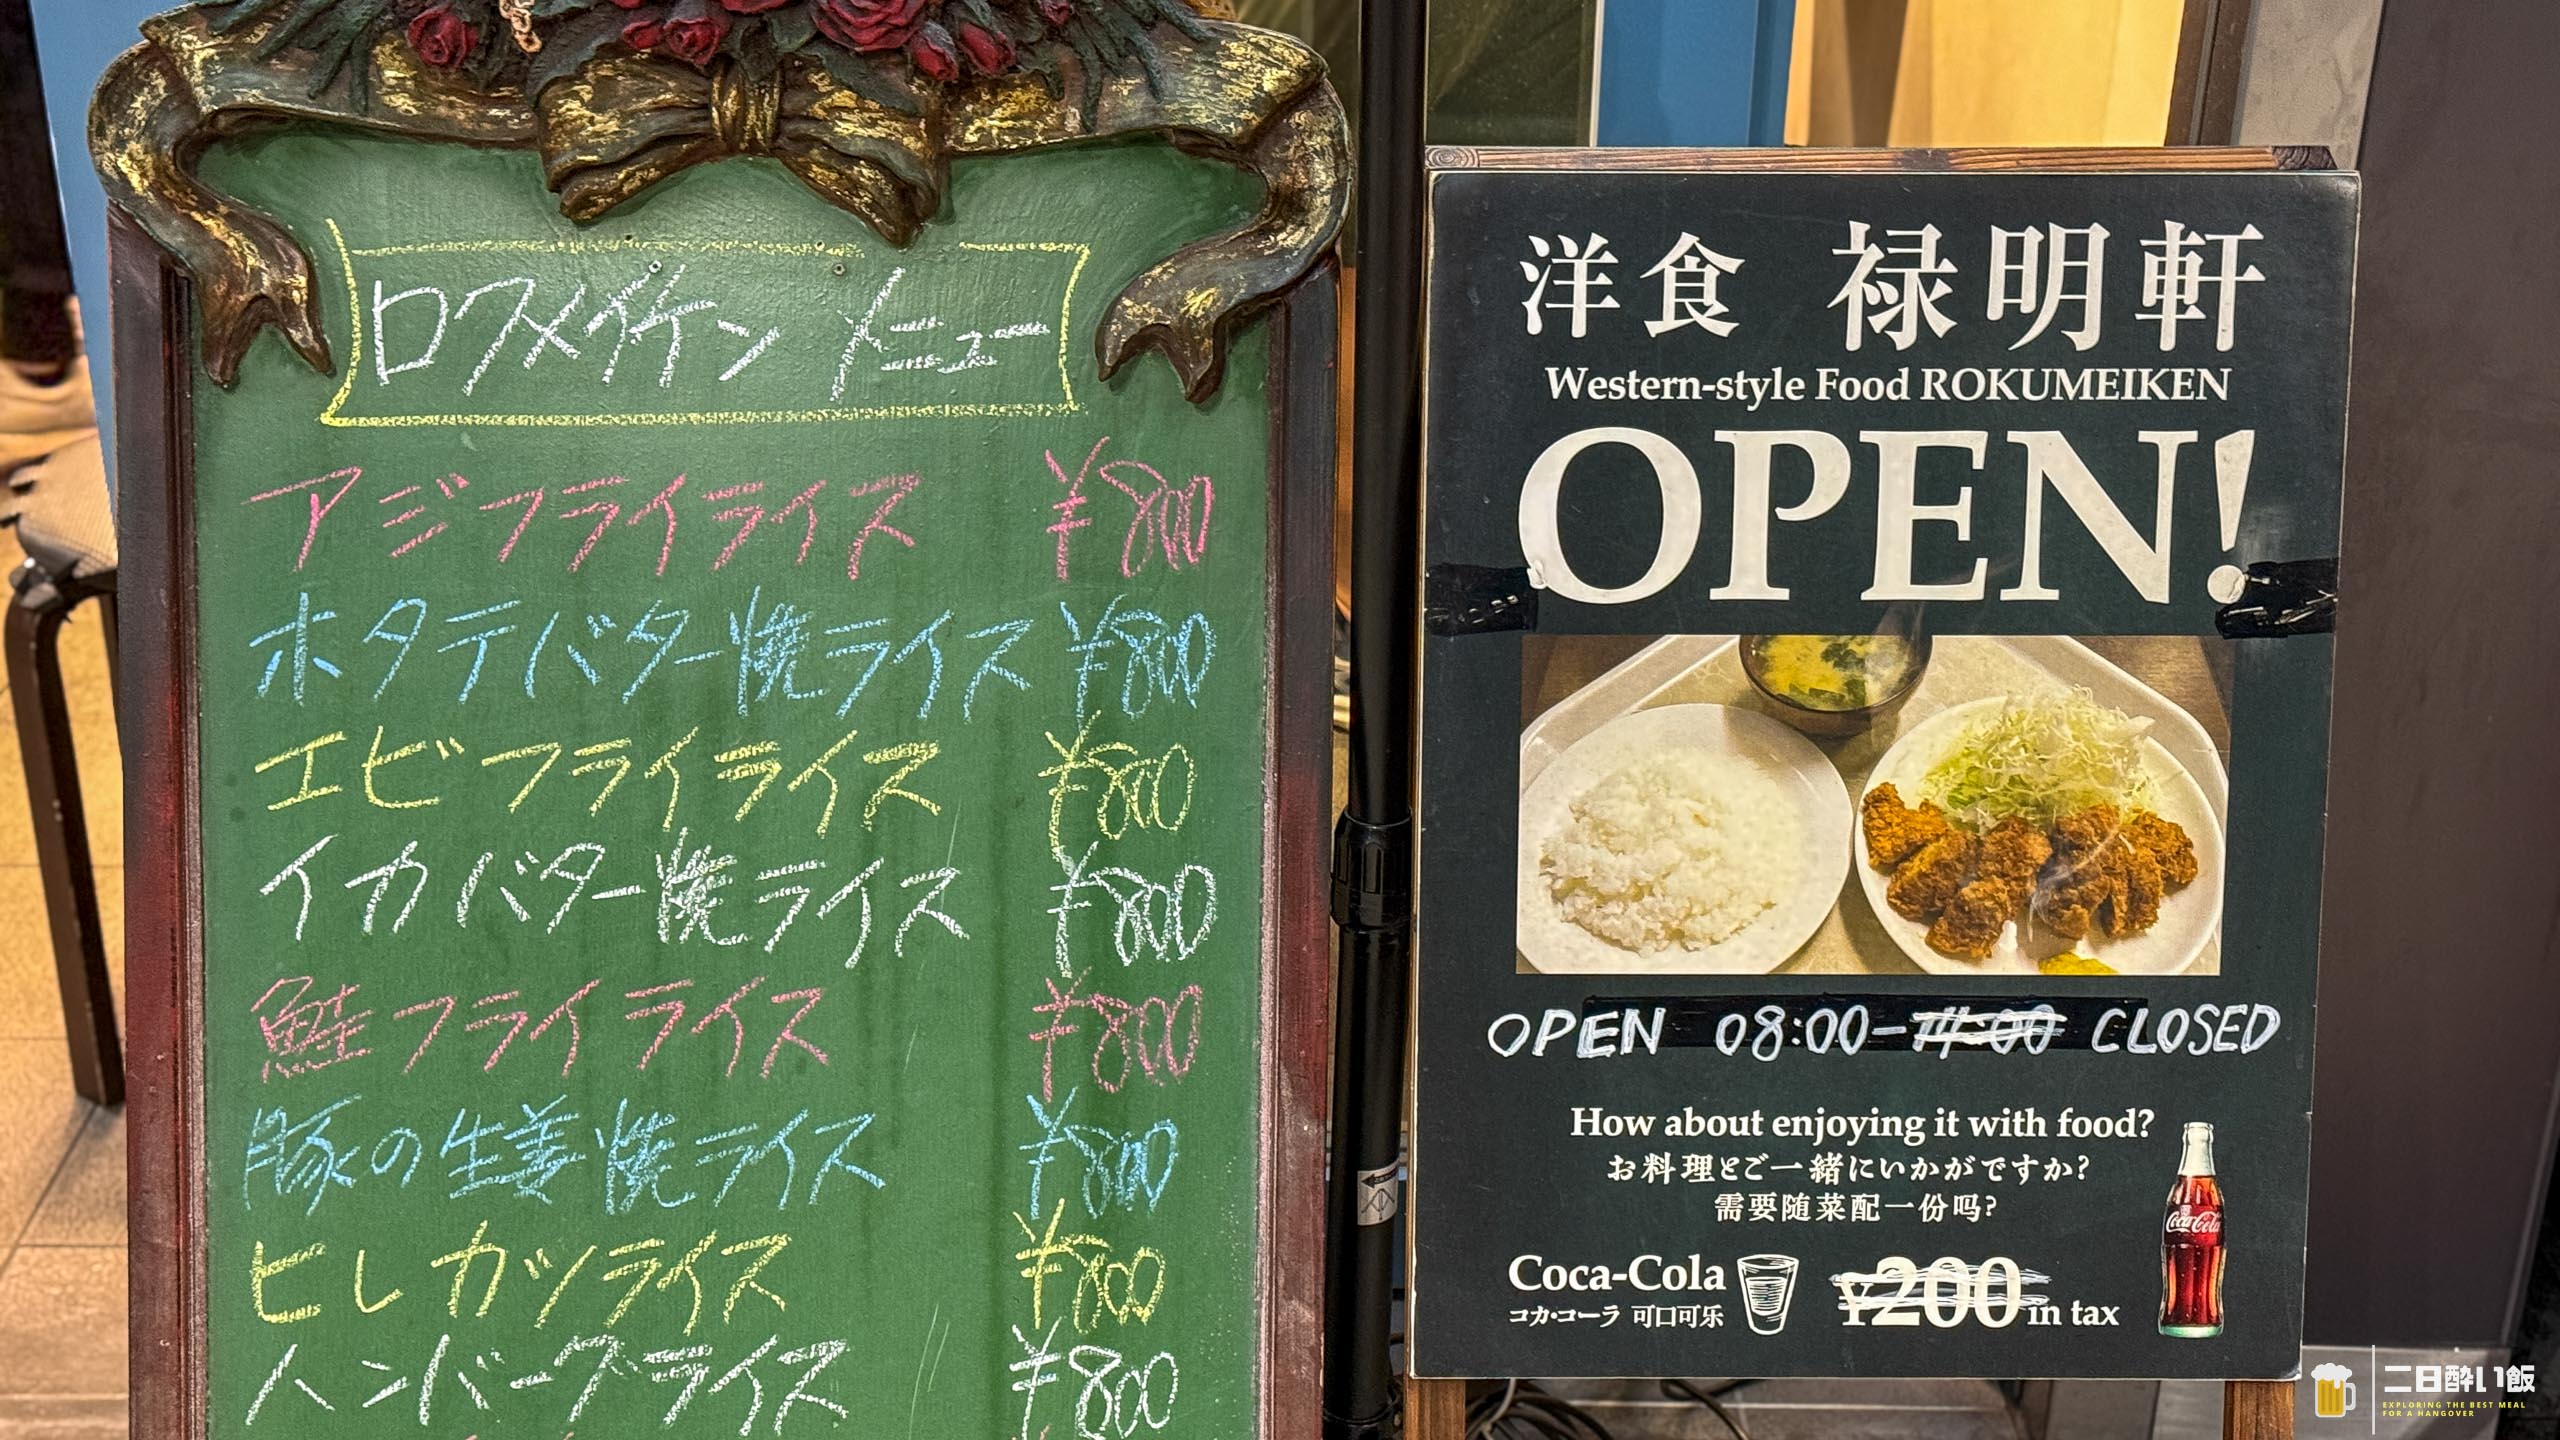 ロクメイケン メニュー
アジフライライス ¥800
ホタテバター焼ライス ¥800
エビフライライス ¥800
イカバター焼ライス ¥800
鮭フライライス ¥800
豚の生姜焼ライス ¥800
ヒレカツライス ¥800
ハンバーグライス ¥800
洋食 禄明軒
Western-style Food ROKUMEIKEN
OPEN!
OPEN 08:00-14:00 CLOSED
How about enjoying it with food?
お料理とご一緒にいかがですか?
需要随菜配一份吗?
Coca-Cola
コカ・コーラ 可口可乐
¥200 in tax
Coca-Cola
二日酔い飯
EXPLORING THE BEST MEAL
FOR A HANGOVER